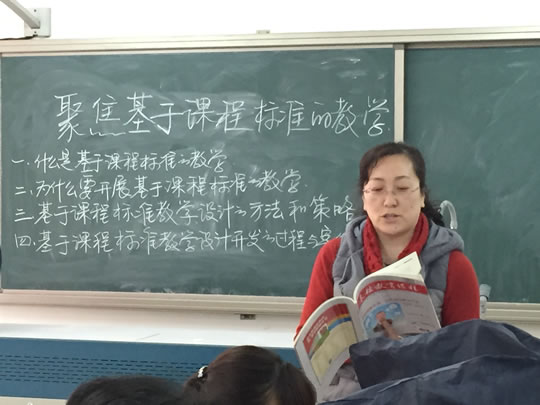 聚焦基于课程标准的教学
一.什么是基于课程标准的教学
二.为什么要开展基于课程标准的教学
三.基于课程标准教学设计的方法和策略
四.基于课程标准教学设计开发的过程与